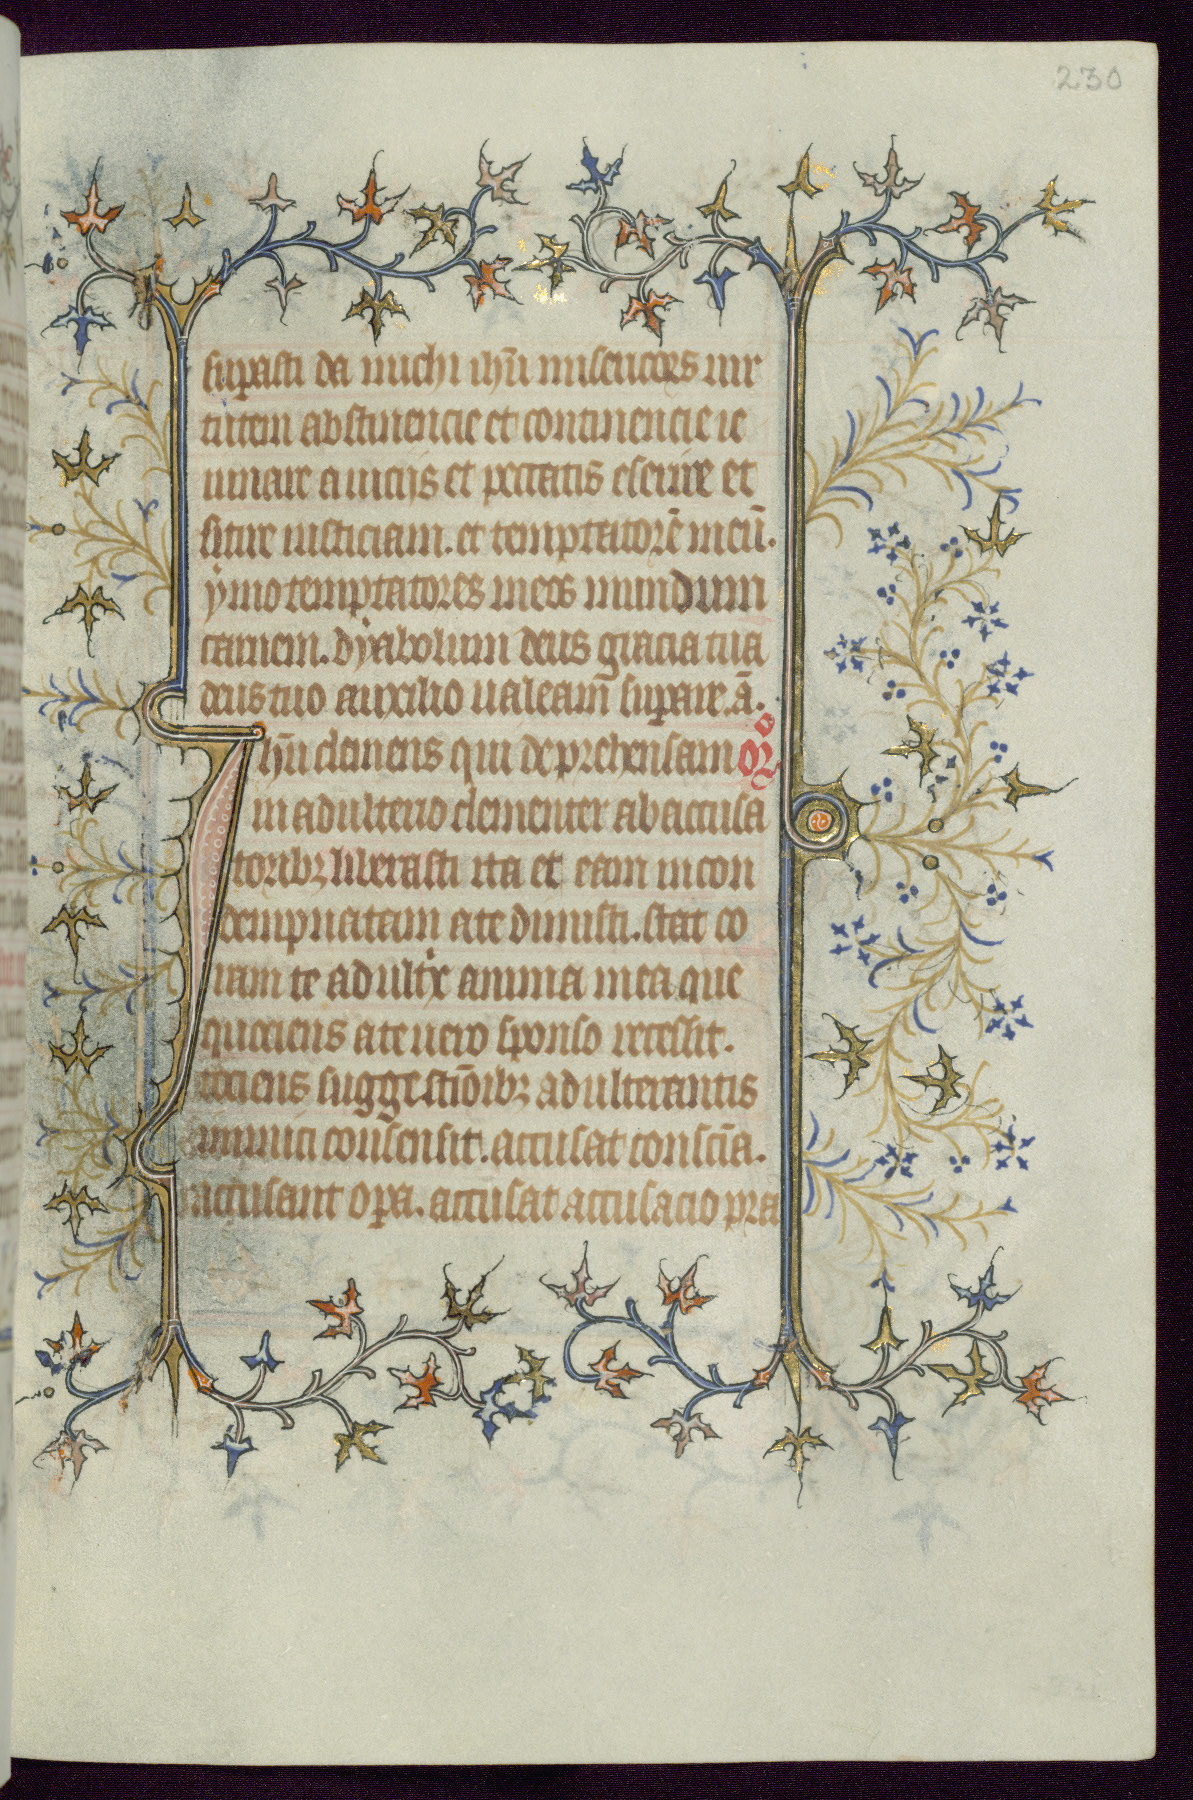 230
supasti da michi ihu misericors uir
tutem abstinencie et continencie ie
iunare a uiciis et peccatis esurire et
sitire iusticiam. et temptatorē meū.
ymo temptatores meos mundum
carnem. dyabolum deus gracia tua
deus tuo auxilio ualeam supare. ā.
Ihu clemens qui deprehensam oro
in adulterio clementer ab accusa
toribz liberasti ita et eam incon
dempnatam a te dimisti. stat co
ram te adultx anima mea que
quociens a te uero sponso recessit.
tociens suggestiōibz adulterantis
inimici consensit. accusat consciā.
accusant opa. accusat accusacio pra